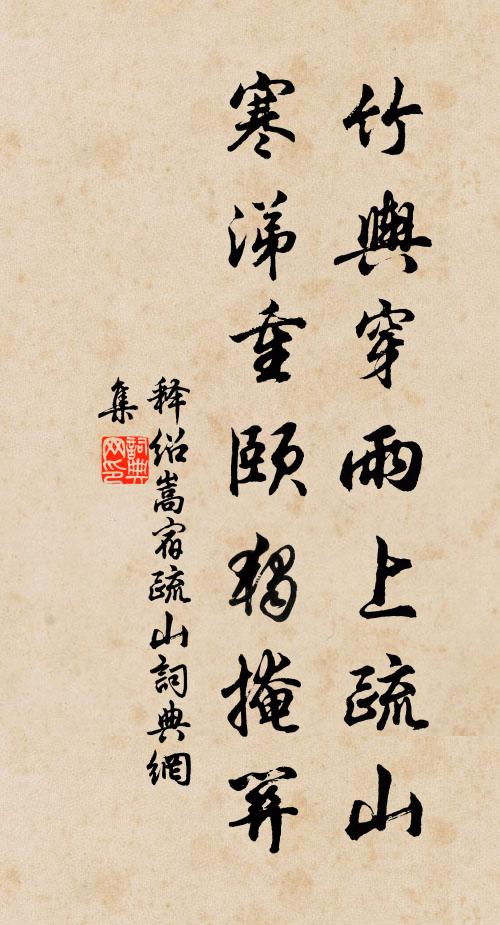 竹輿穿雨上疏山
寒涕垂頤獨掩關
释绍嵩宿疏山詞典網
集
詞典網印